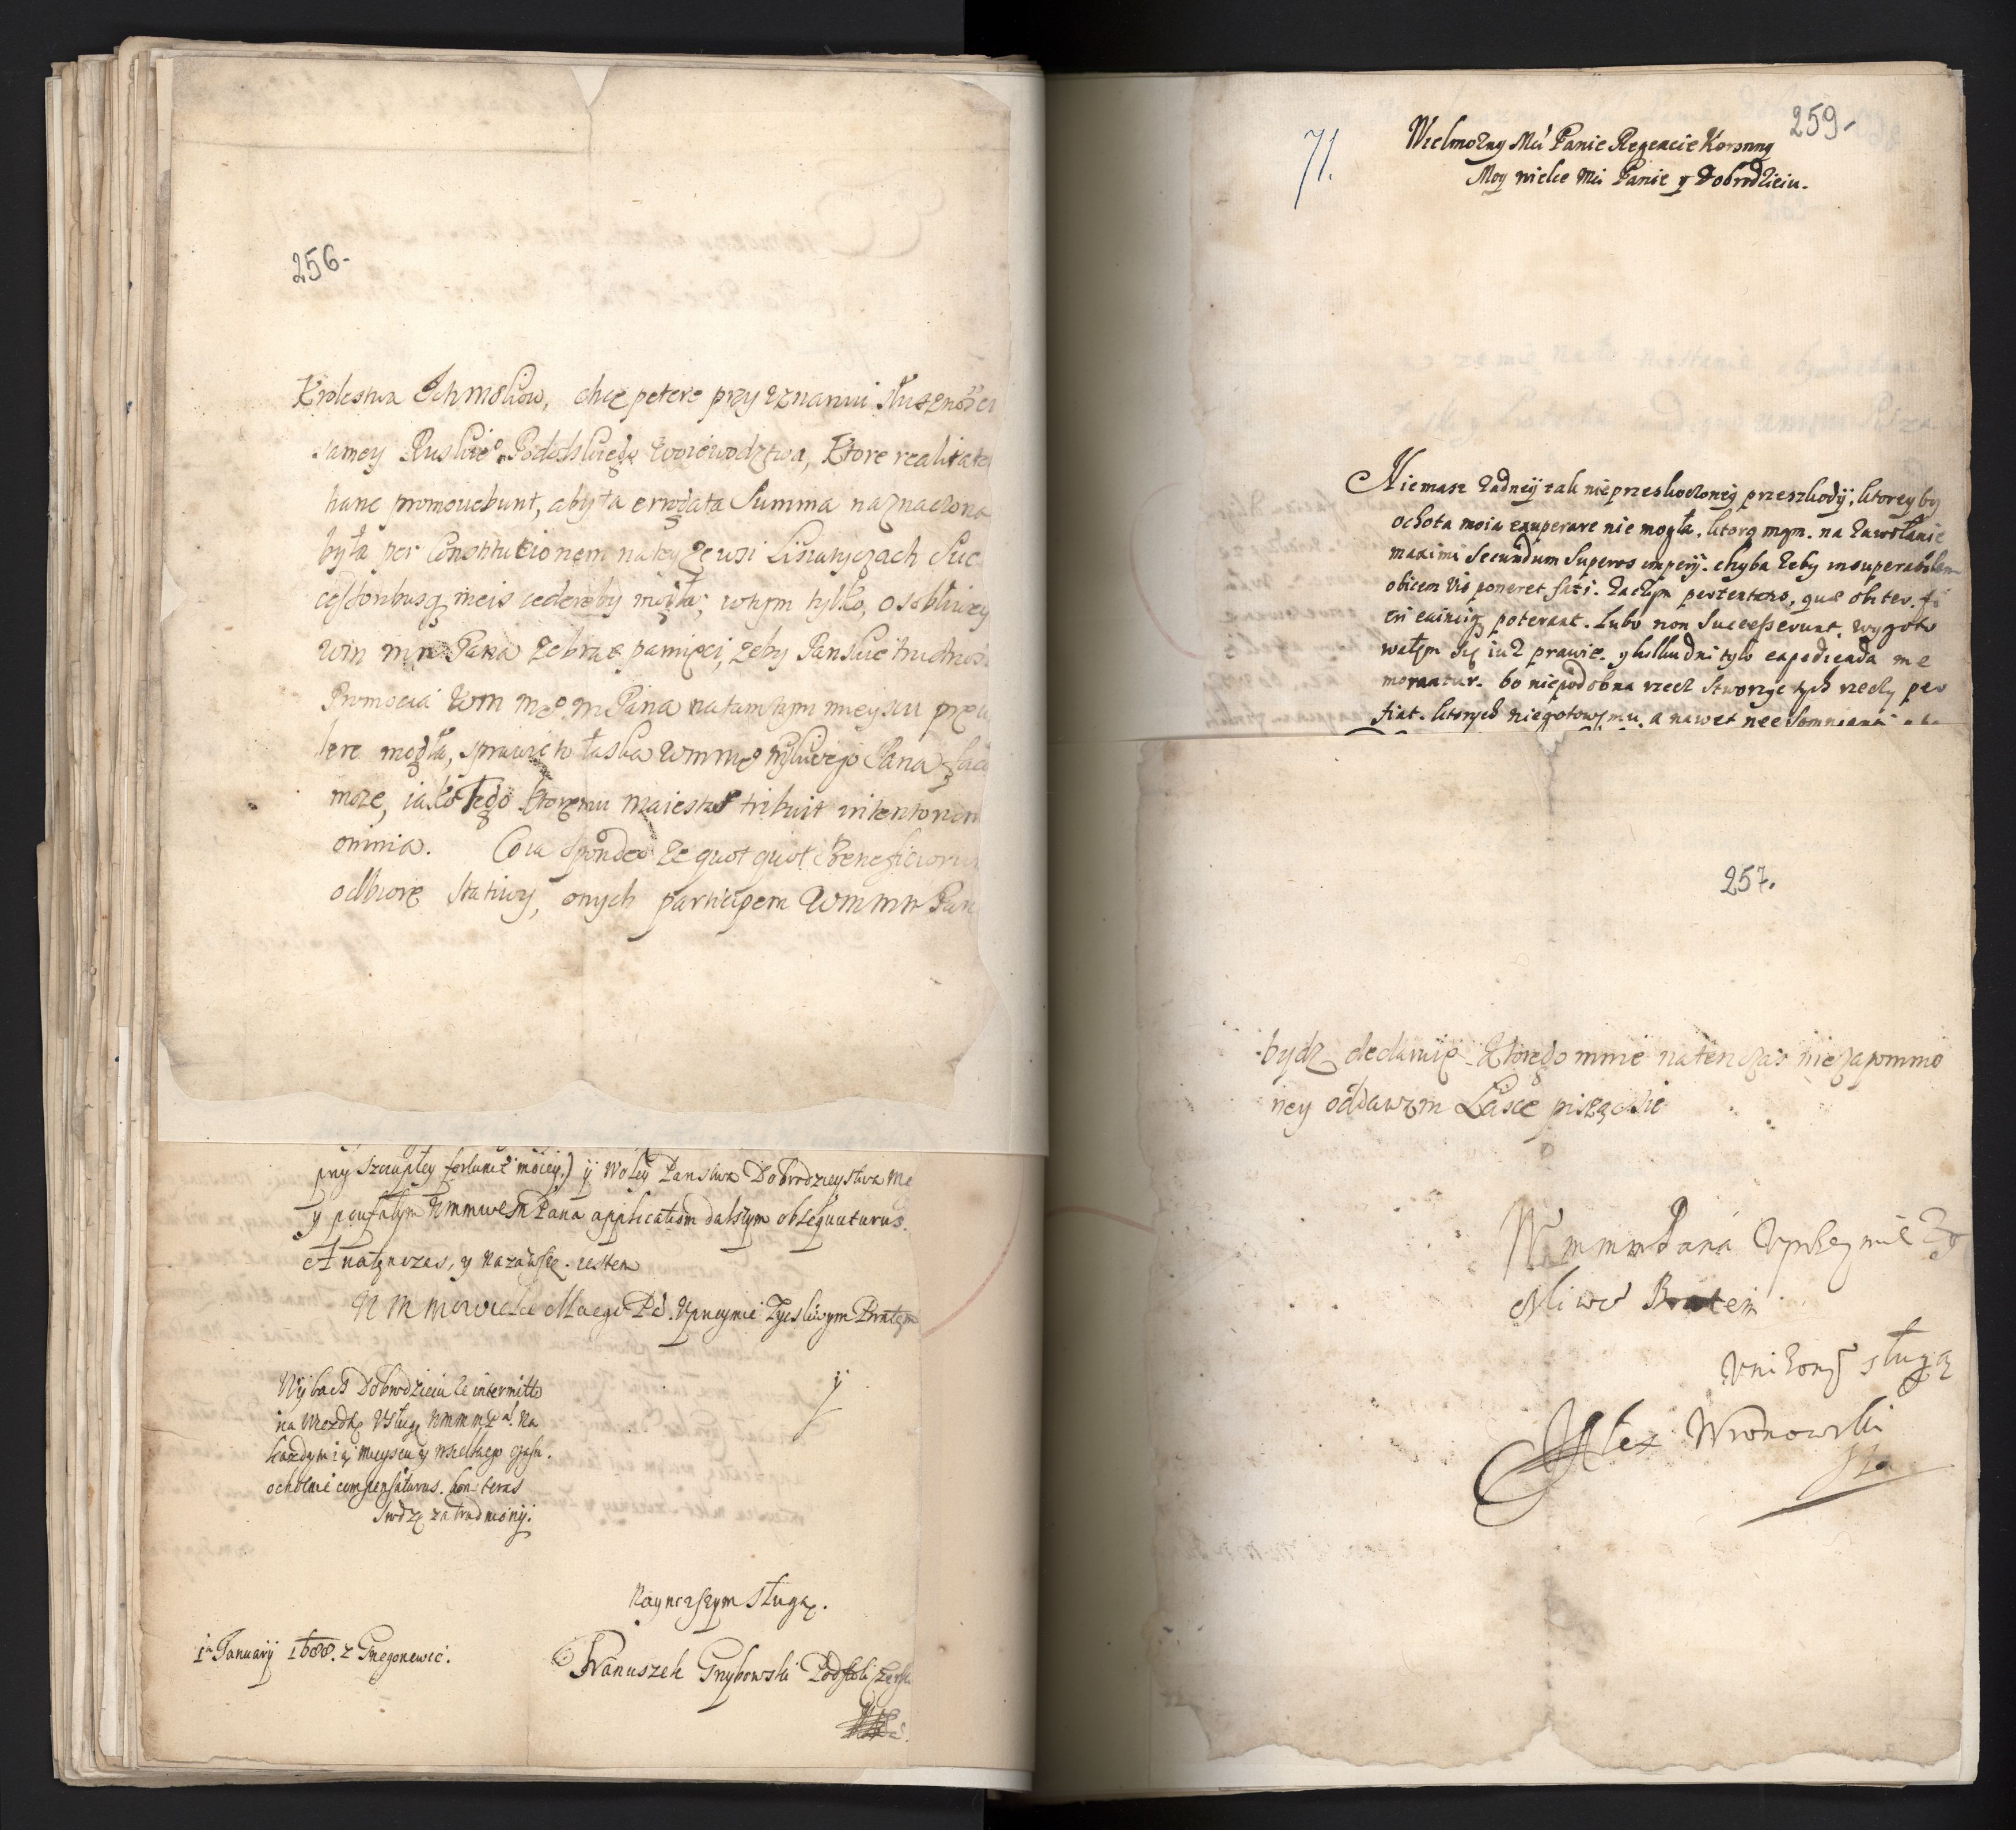 256.
Krolestwa Ichmosciow, chcę petere przy uznaniu słuszności
samey Ruskiego Podolskiego woiewodztwa, ktore realitate
hanc promovebunt, aby ta erogata Summa naznaczona
była per Constitutionem na tey ze wsi Lisiatyczach Suc
cessoribusq meis cedereby mogła; w tym tylko, osobliwey
Wm mm Pana zebrze pamięci, zeby Panskie trudnosci
Promocia Wm mego mPana na tamtym mieyscu
lere mogła, sprawić to łaska Wmmego Pana
moze, iako Tego ktoremu maiestas tribuit
omnia. Co ia spondeo ze quot quot Beneficiorum
odbiorę statiwy, onych participem Wmmm Pana
przy szczupłey fortunie moiey,) ÿ woley Panstwa Dobrodzieystwa me
y poufałym Wmmwem Pana applicatiom dalszym obsequuturus.
et natenczas, y nazawsze. iestem
Wm Pa. Uprzeymie Zyczliwym Bratem
ÿ
Wÿbacz Dobrodzieiu ze intermitto
na Usługę Wmmm Pa. Na
kazdym mieyscu y czasu.
ochotnie compensaturus. teras
zatrudniony.
Nayniszszym Sługą.
1 January 1688. z
Franuszek Grzybowski Podstoli
71.
259.
Wielmozny Mci Panie Regencie Koronny
Moy wielce Mci Panie y Dobrodzieiu.
Niemasz zadneÿ tak nieprzeskoczoneÿ przeszkodÿ, ktoreyby
ochota moia exuperare nie mogła, ktorą mam. na zawołanie
maximi Secundum Superos imperÿ. chyba zeby insuperabilem
obicem vis poneret fati. Zaczym pertentans, quæ obiter. fi
eri poterant. Lubo non Successerunt. wygoto
wałem się iuz prawie. y kilku dni tylo expedienda me
morantur. bo niepodobna rzecz stworzyc tych rzeczy per
fiat. ktorych niegotowemu, a nawet nec somnianti
257.
bydz declaruię. Ktorego mnie natenczas niezapomnio
ney oddawszm Łasce piszącsie
Wmmm Pana Uprzeymie Zy
czliwÿ Bratem
Unizony sługa
Alex Wronowski